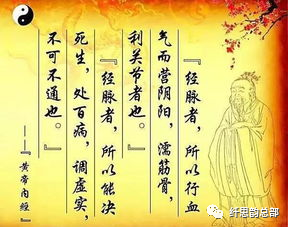 『经脉者，所以行血
气而营阴阳，濡筋骨，
利关节者也。』
『经脉者，所以能决
死生，处百病，调虚实，
不可不通也。』
——『黄帝内经』
纤思韵总部